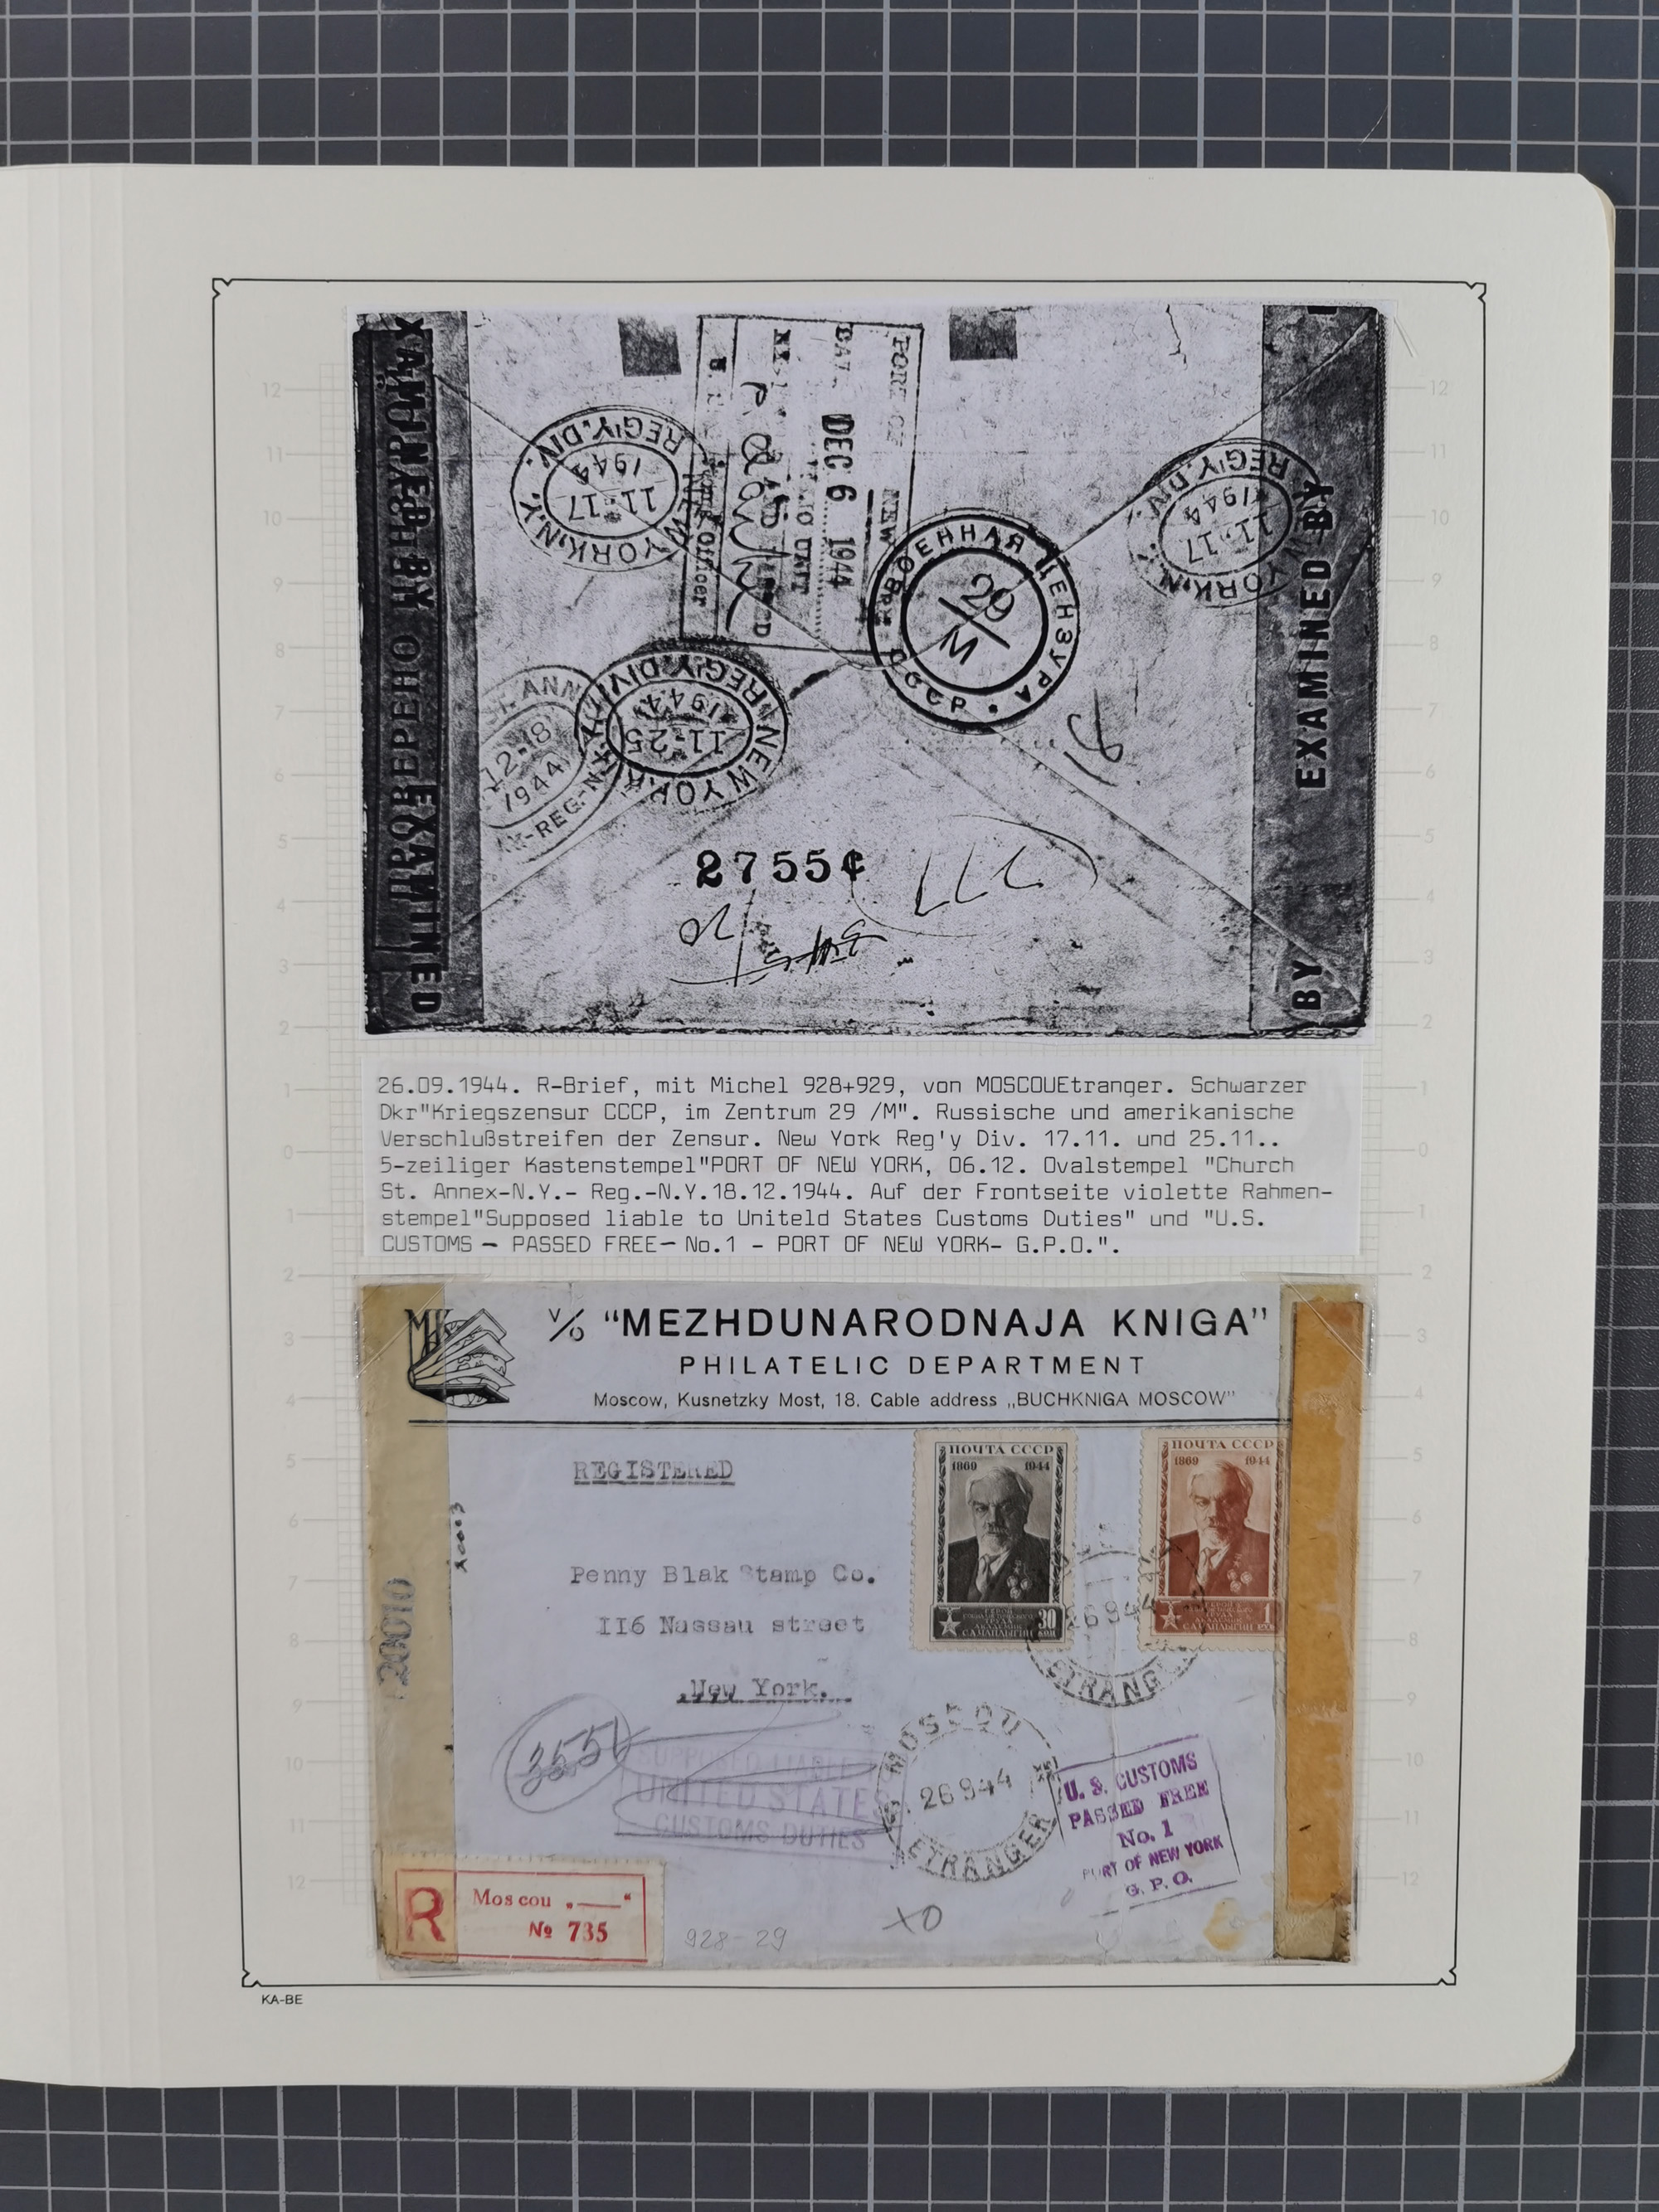 XAMINED BY EXAMINED
ПРОВЕРЕНО
NEW YORK, N.Y. REG'Y. DIV.
11-17
1944
DEC 6 1944
NEW
ВОЕННАЯ ЦЕНЗУРА • СССР
29
М
NEW YORK, N.Y. REG'Y. DIV.
11-17
1944
EXAMINED BY
BY
ST. ANN
12-8
1944
REG.-N.
NEW YORK, N.Y. REG'Y DIV.
11-25
1944
2755¢
26.09.1944. R-Brief, mit Michel 928+929, von MOSCOUEtranger. Schwarzer
Dkr"Kriegszensur CCCP, im Zentrum 29 /M". Russische und amerikanische
Verschlußstreifen der Zensur. New York Reg'y Div. 17.11. und 25.11..
5-zeiliger Kastenstempel"PORT OF NEW YORK, 06.12. Ovalstempel "Church
St. Annex-N.Y.- Reg.-N.Y.18.12.1944. Auf der Frontseite violette Rahmen-
stempel"Supposed liable to Uniteld States Customs Duties" und "U.S.
CUSTOMS - PASSED FREE- No.1 - PORT OF NEW YORK- G.P.O.".
MK
V/O "MEZHDUNARODNAJA KNIGA"
PHILATELIC DEPARTMENT
Moscow, Kusnetzky Most, 18. Cable address „BUCHKNIGA MOSCOW"
REGISTERED
ПОЧТА СССР
1869 1944
30
ПОЧТА СССР
1869 1944
1
26 9 44
ETRANGE
Penny Blak Stamp Co.
116 Nassau street
New York.
SUPPOSED LIABLE
UNITED STATES
CUSTOMS DUTIES
MOSCOU
26 9 44
ETRANGER
U. S. CUSTOMS
PASSED FREE
No. 1
PORT OF NEW YORK
G. P. O.
R
Moscou „——"
№ 735
928-29
KA-BE